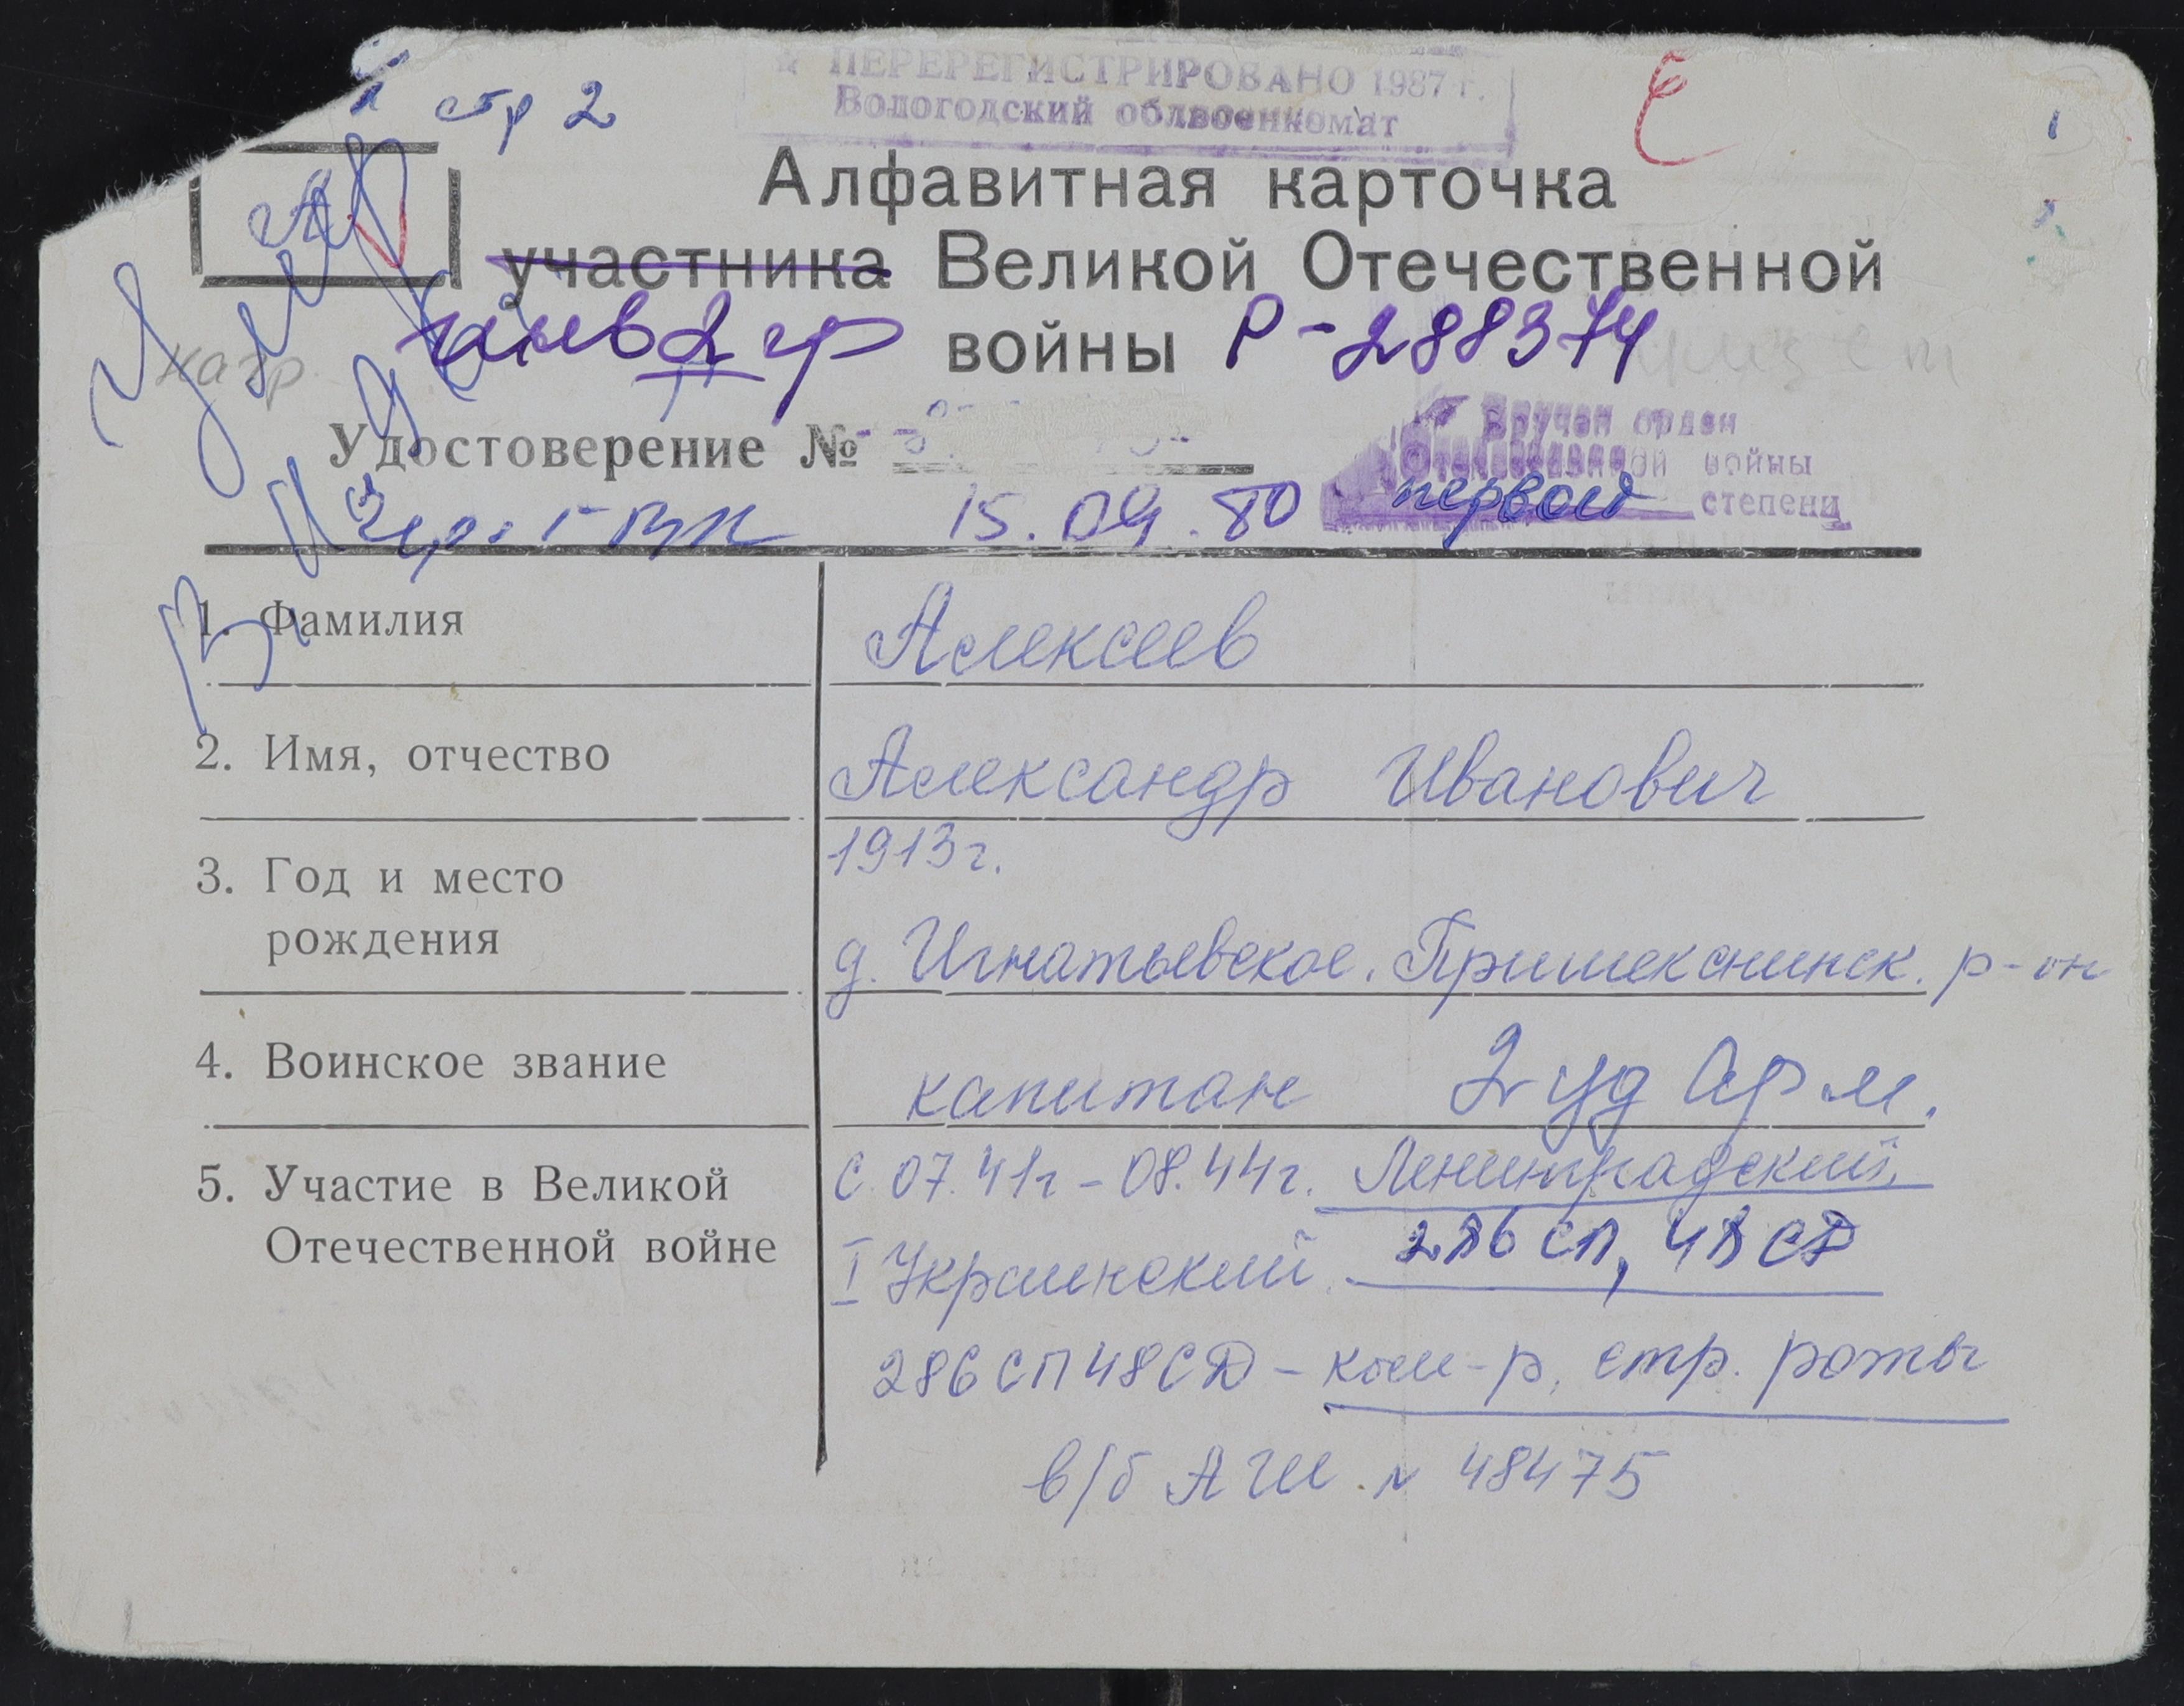 стр 2
ПЕРЕРЕГИСТРИРОВАНО 1987 г.
Вологодский облвоенкомат
Алфавитная карточка
участника Великой Отечественной
инв 2 гр войны Р-288374
нагр.
Удостоверение №
Вручен орден
Отечественной войны
первой степени
15.09.80
1. Фамилия Алексеев
2. Имя, отчество Александр Иванович
3. Год и место 1913г.
рождения д. Игнатьевское. Пришекснинск. р-он
4. Воинское звание капитан 2 уд Арм.
5. Участие в Великой с 07.41г - 08.44г. Ленинградский,
Отечественной войне I Украинский 286 СП, 48 СД
286 СП 48 СД - ком-р. стр. роты
в/б АШ № 48475